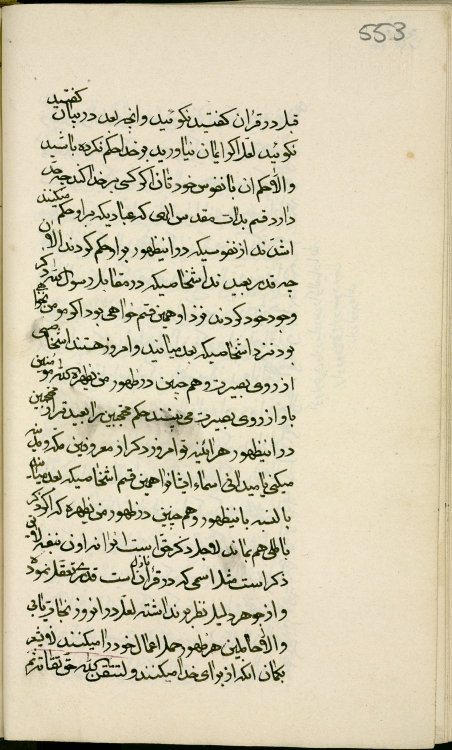 553
گفتید
قبل در قران گفتید نگوئید و انچه بعد در بیان
نگوئید لعل اگر ایمان نیاورید بر خدا حکم نکرده باشید
والا حکم ان با نفوس خودتان اگر کسی بر خدا کند چه حد
دارد قسم بذات مقدس الهی که عبادیکه براو حکم میکنند
اشد ند از نفوسیکه در انظهور براو حکم کودند الان
چه قدر بعید ند اشخاصیکه در مقابل رسول الله ذکر
وجود خود کودند نزد او همین قسم خواهی بود اگر مومن
بود نزد اشخاصیکه بعد میایند و امروز هستند اشخاصی
از روی بصیرت و هم چنین در ظهور من یظهره الله مومنین
باو از روی بصیرت می بینند حکم محتجبین را بعید تر از محتجبین
در انظهور هر اینه تو امروز ذکر از معروفین مکه و مدینه
میکنی یا میدانی اسماء ایشانرا همین قسم اشخاصیکه بعد میایند
بالنسبه باینظهور و هم چنین در ظهور من یظهره الله اگر ذکر
باطلی هم بماند لاجل ذکر حق است انوا نه اون منفعه لا فی
ذکر است مثل اسمی که در قران نازل است قدری تعقل نموده
و از جوهر دلیل نظر برنداشته لعل در انروز نجات یابی
والا حاملین هر ظهور حمل اعمال خود را میکنند لا فی
بگمان انکه از برای خدا میکنند ولتتقن الله حق تقاته ثم